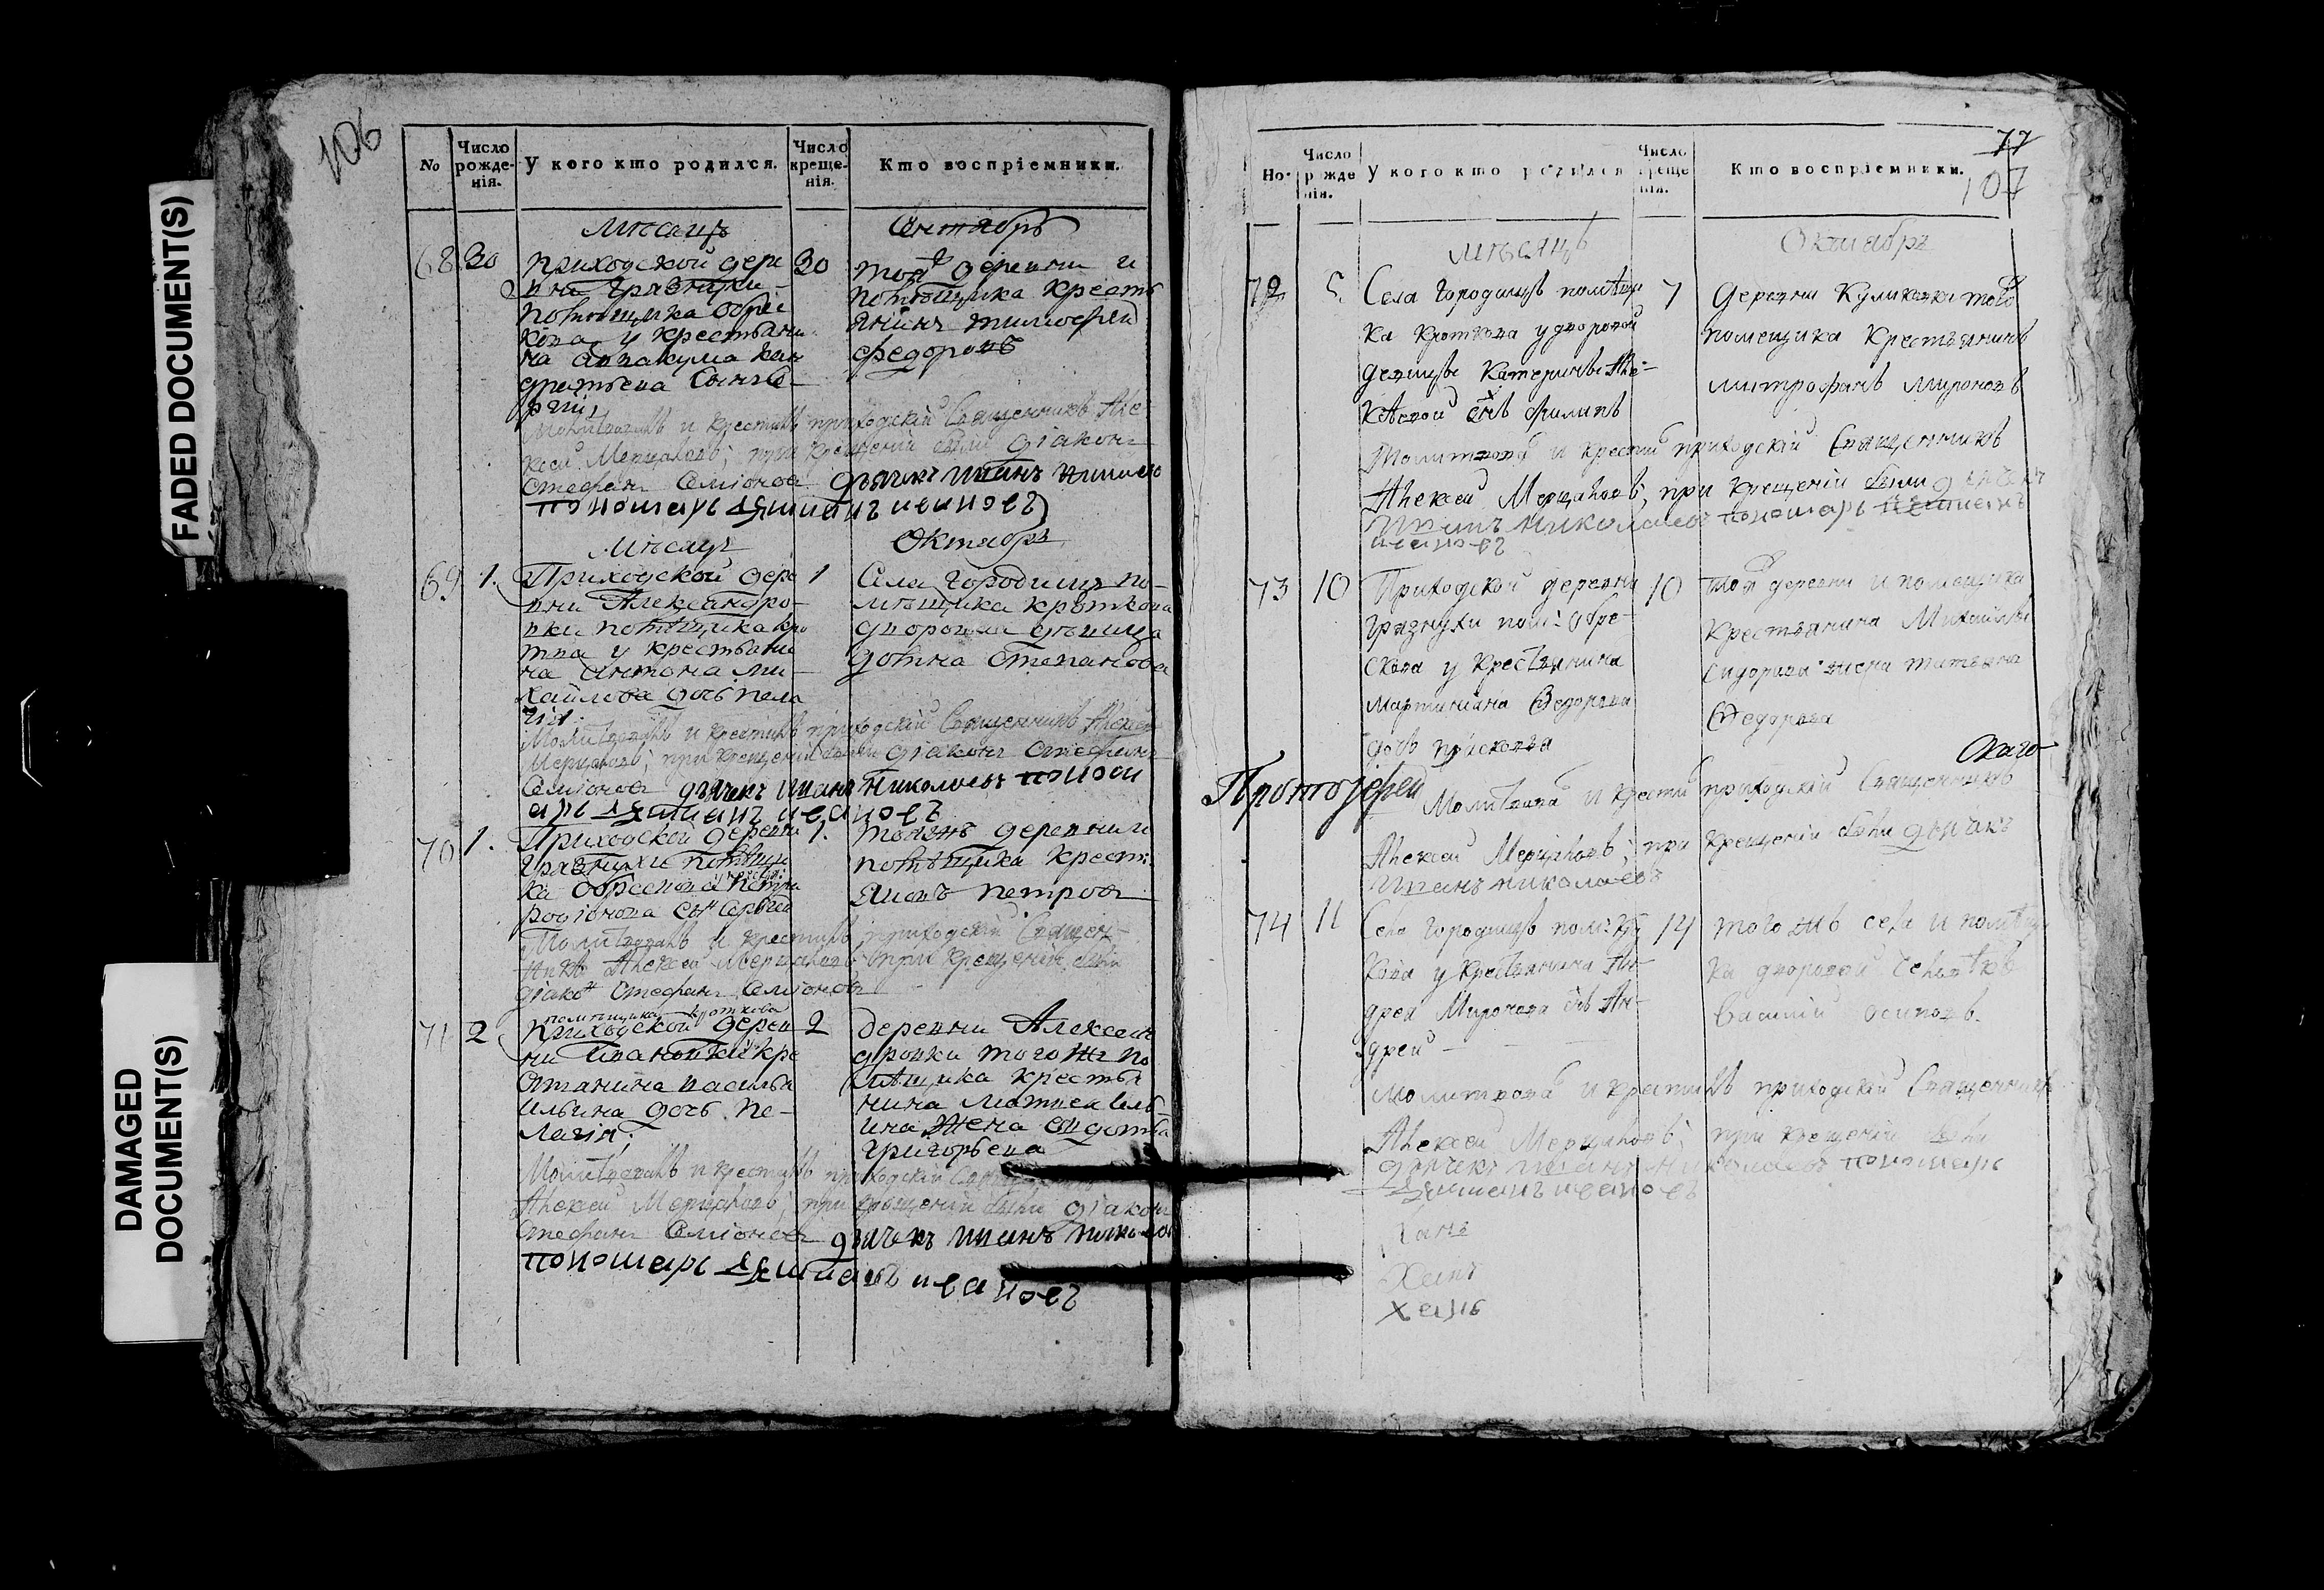 106
No
Число рожденія.
У кого кто родился.
Число крещенія.
Кто воспріемники.
Мѣсяцъ
Сентябрь
68
30
приходской дере
вни Грязнухи
помѣщика Обрес
кова у крестьяни
на Аввакума Кон
дратьева сынъ
30
тояжъ деревни и
помѣщика кресть
янинъ Тимофей
Федоровъ
Молитвовалъ и крестилъ приходскій Священникъ Але
ксей Мерцаловъ; при крещеніи были діаконъ
Стефанъ Семіоновъ дьячекъ Иванъ Николае
пономарь иванoвъ
Мѣсяцъ
Октябрь
69
1.
Приходской дере
вни Александро-
вки помѣщика Кро
ткова у крестьяни
на Антона Ми-
хайлова дочь Пела
гія.
1
Села Городищъ по-
мѣщика Кроткова
дворовая дѣвица
Домна Степанова
Молитвовалъ и крестилъ приходскій Священникъ Алексей
Мерцаловъ; при крещеніи были діаконъ Стефанъ
Семіоновъ дьячекъ Иванъ Николаевъ поном
арь ивановъ
70
1.
Приходской деревни
Грязнухи помѣщи
ка Обрескова у крест: Петра
Родіонова сын Сергей
1.
тояжъ деревни и
помѣщика крест:
Яковъ Петровъ
Молитвовалъ и крестилъ приходскій Священ-
никъ Алексей Мерцаловъ при крещеніи были
діакон Стефанъ Семіоновъ
71
2
помѣщика Кроткова
Приходской дерев
ни Ивановки у кре
стянина Василья
Ильина дочь Пе-
лагія;
2
деревни Алексан
дровки того же по
мѣщика крестья
нина Матвея Иль-
ина жена Федотья
Григорьева
Молитвовалъ и крестилъ приходскій Священникъ
Алексей Мерцаловъ, при крещеніи были діаконъ
Стефанъ Семіоновъ дьячекъ Иванъ Николаев
пономарь ивановъ
77
107
Но.
Число рожденія.
У кого кто родился
Число крещенія.
Кто воспріемники.
мѣсяцъ
Октябрь
72
5.
Села Городищъ помѣщи
ка Кроткова у дворовой
девицы Катерины Але-
ксѣевой сынъ Филипъ
7
Деревни Куликовки того
помещика Крестьянинъ
Митрофанъ Мироновъ
Молитвовал и крестил приходскій Священникъ
Алексей Мерцаловъ, при крещеніи были дьячекъ
Иванъ Николаевъ пономарь
ивановъ
73
10
Приходской деревни
Грязнухи пом: Обре-
скова у Крестьянина
Мартиніана Федорова
дочь Присковья
10
той деревни и помещика
Крестьянина Михайлы
Сидорова жена Татьяна
Федорова
Протоіерей
Молитвовал и крестил приходскій Священникъ
Алексей Мерцаловъ; при крещеніи были дьчакъ
Иванъ Николаевъ
74
11
Села Городищъ пом: Крот
кова у Крестьянина Ан-
дрея Миронова сынъ Ан-
дрей
14
того жъ села и помѣщи
ка дворовой человѣкъ
Василій Осиповъ.
Молитвовал и крестилъ приходскій Священникъ
Алексей Мерцаловъ; при крещеніи были
дьячекъ Иванъ Николаевъ пономарь
ивановъ